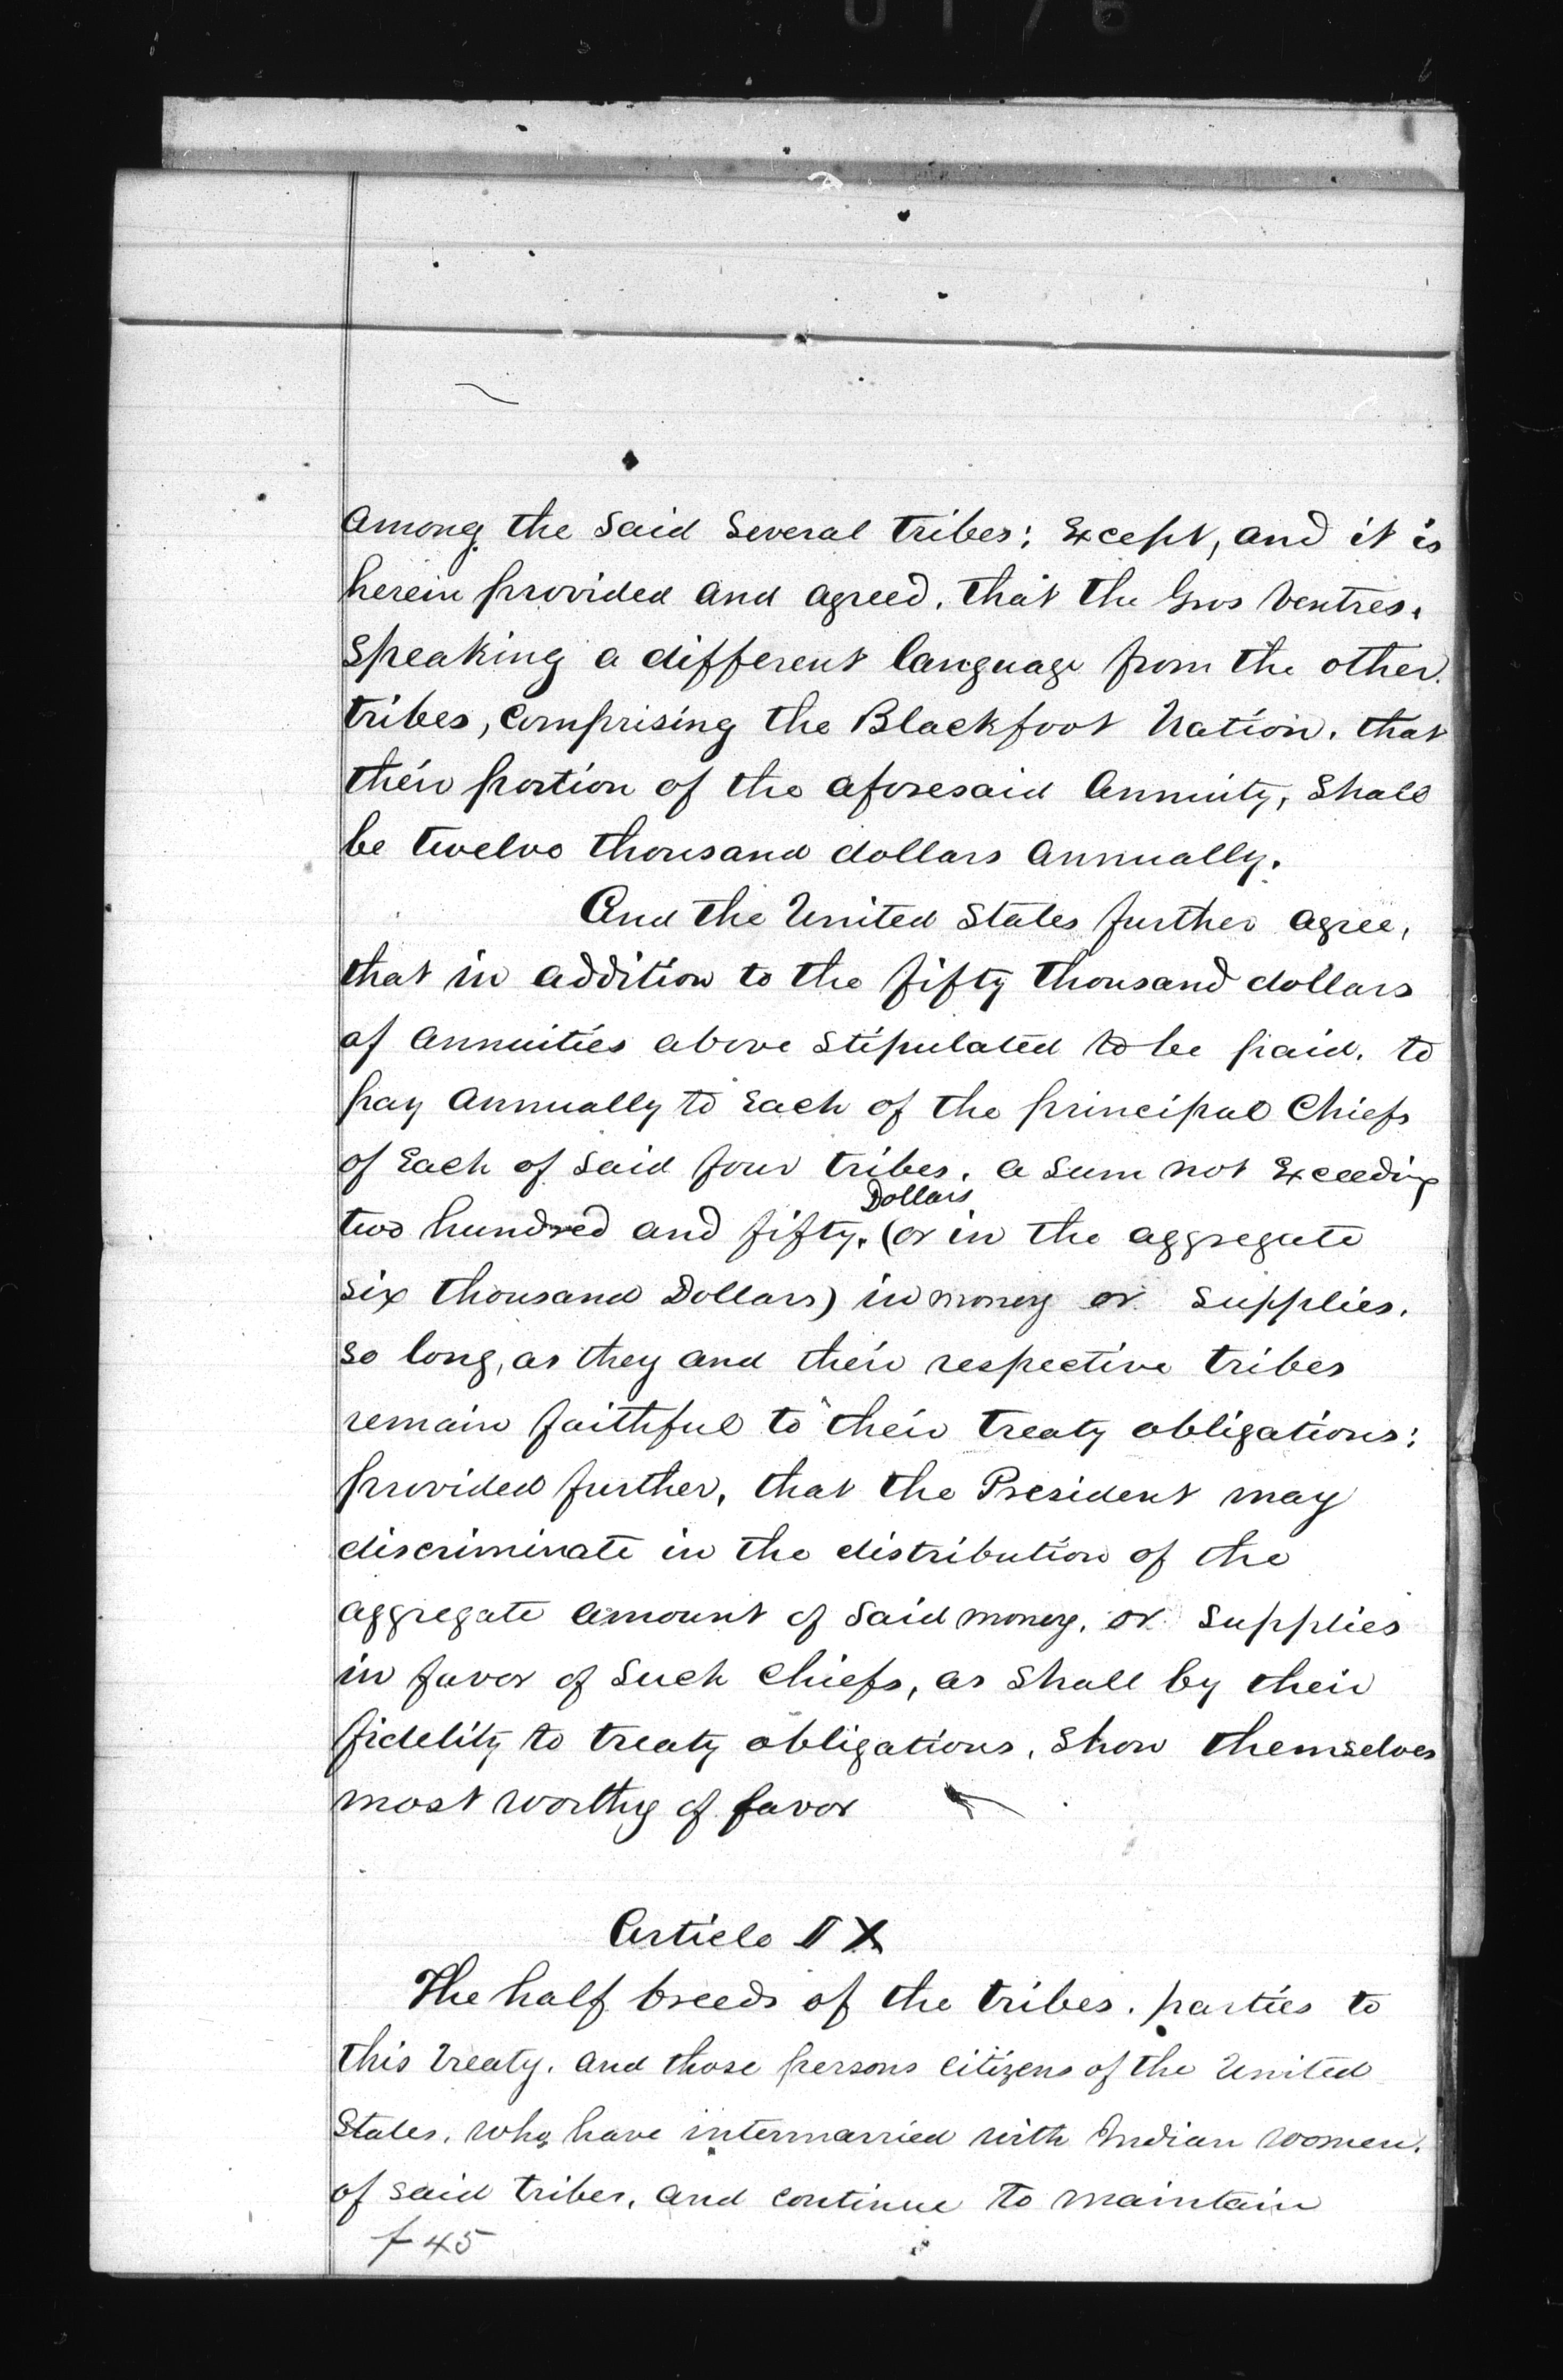 among the said several tribes; Except, and it is
herein provided and agreed, that the Gros Ventres,
speaking a different language from the other
tribes, comprising the Blackfoot Nation, that
their portion of the aforesaid annuity, shall
be twelve thousand dollars annually.
And the United States further agree,
that in addition to the fifty thousand dollars
of annuities above stipulated to be paid, to
pay annually to Each of the principal Chiefs
of Each of said four tribes, a sum not Exceeding
Dollars
two hundred and fifty, (or in the aggregate
six thousand Dollars) in money or supplies,
so long, as they and their respective tribes
remain faithful to their treaty obligations;
provided further, that the President may
discriminate in the distribution of the
aggregate amount of said money, or supplies
in favor of such Chiefs, as shall by their
fidelity to treaty obligations, show themselves
most worthy of favor
Article IX
The half breeds of the tribes, parties to
this treaty, and those persons citizens of the United
States, who have intermarried with Indian women,
of said tribes, and continue to maintain
f 45